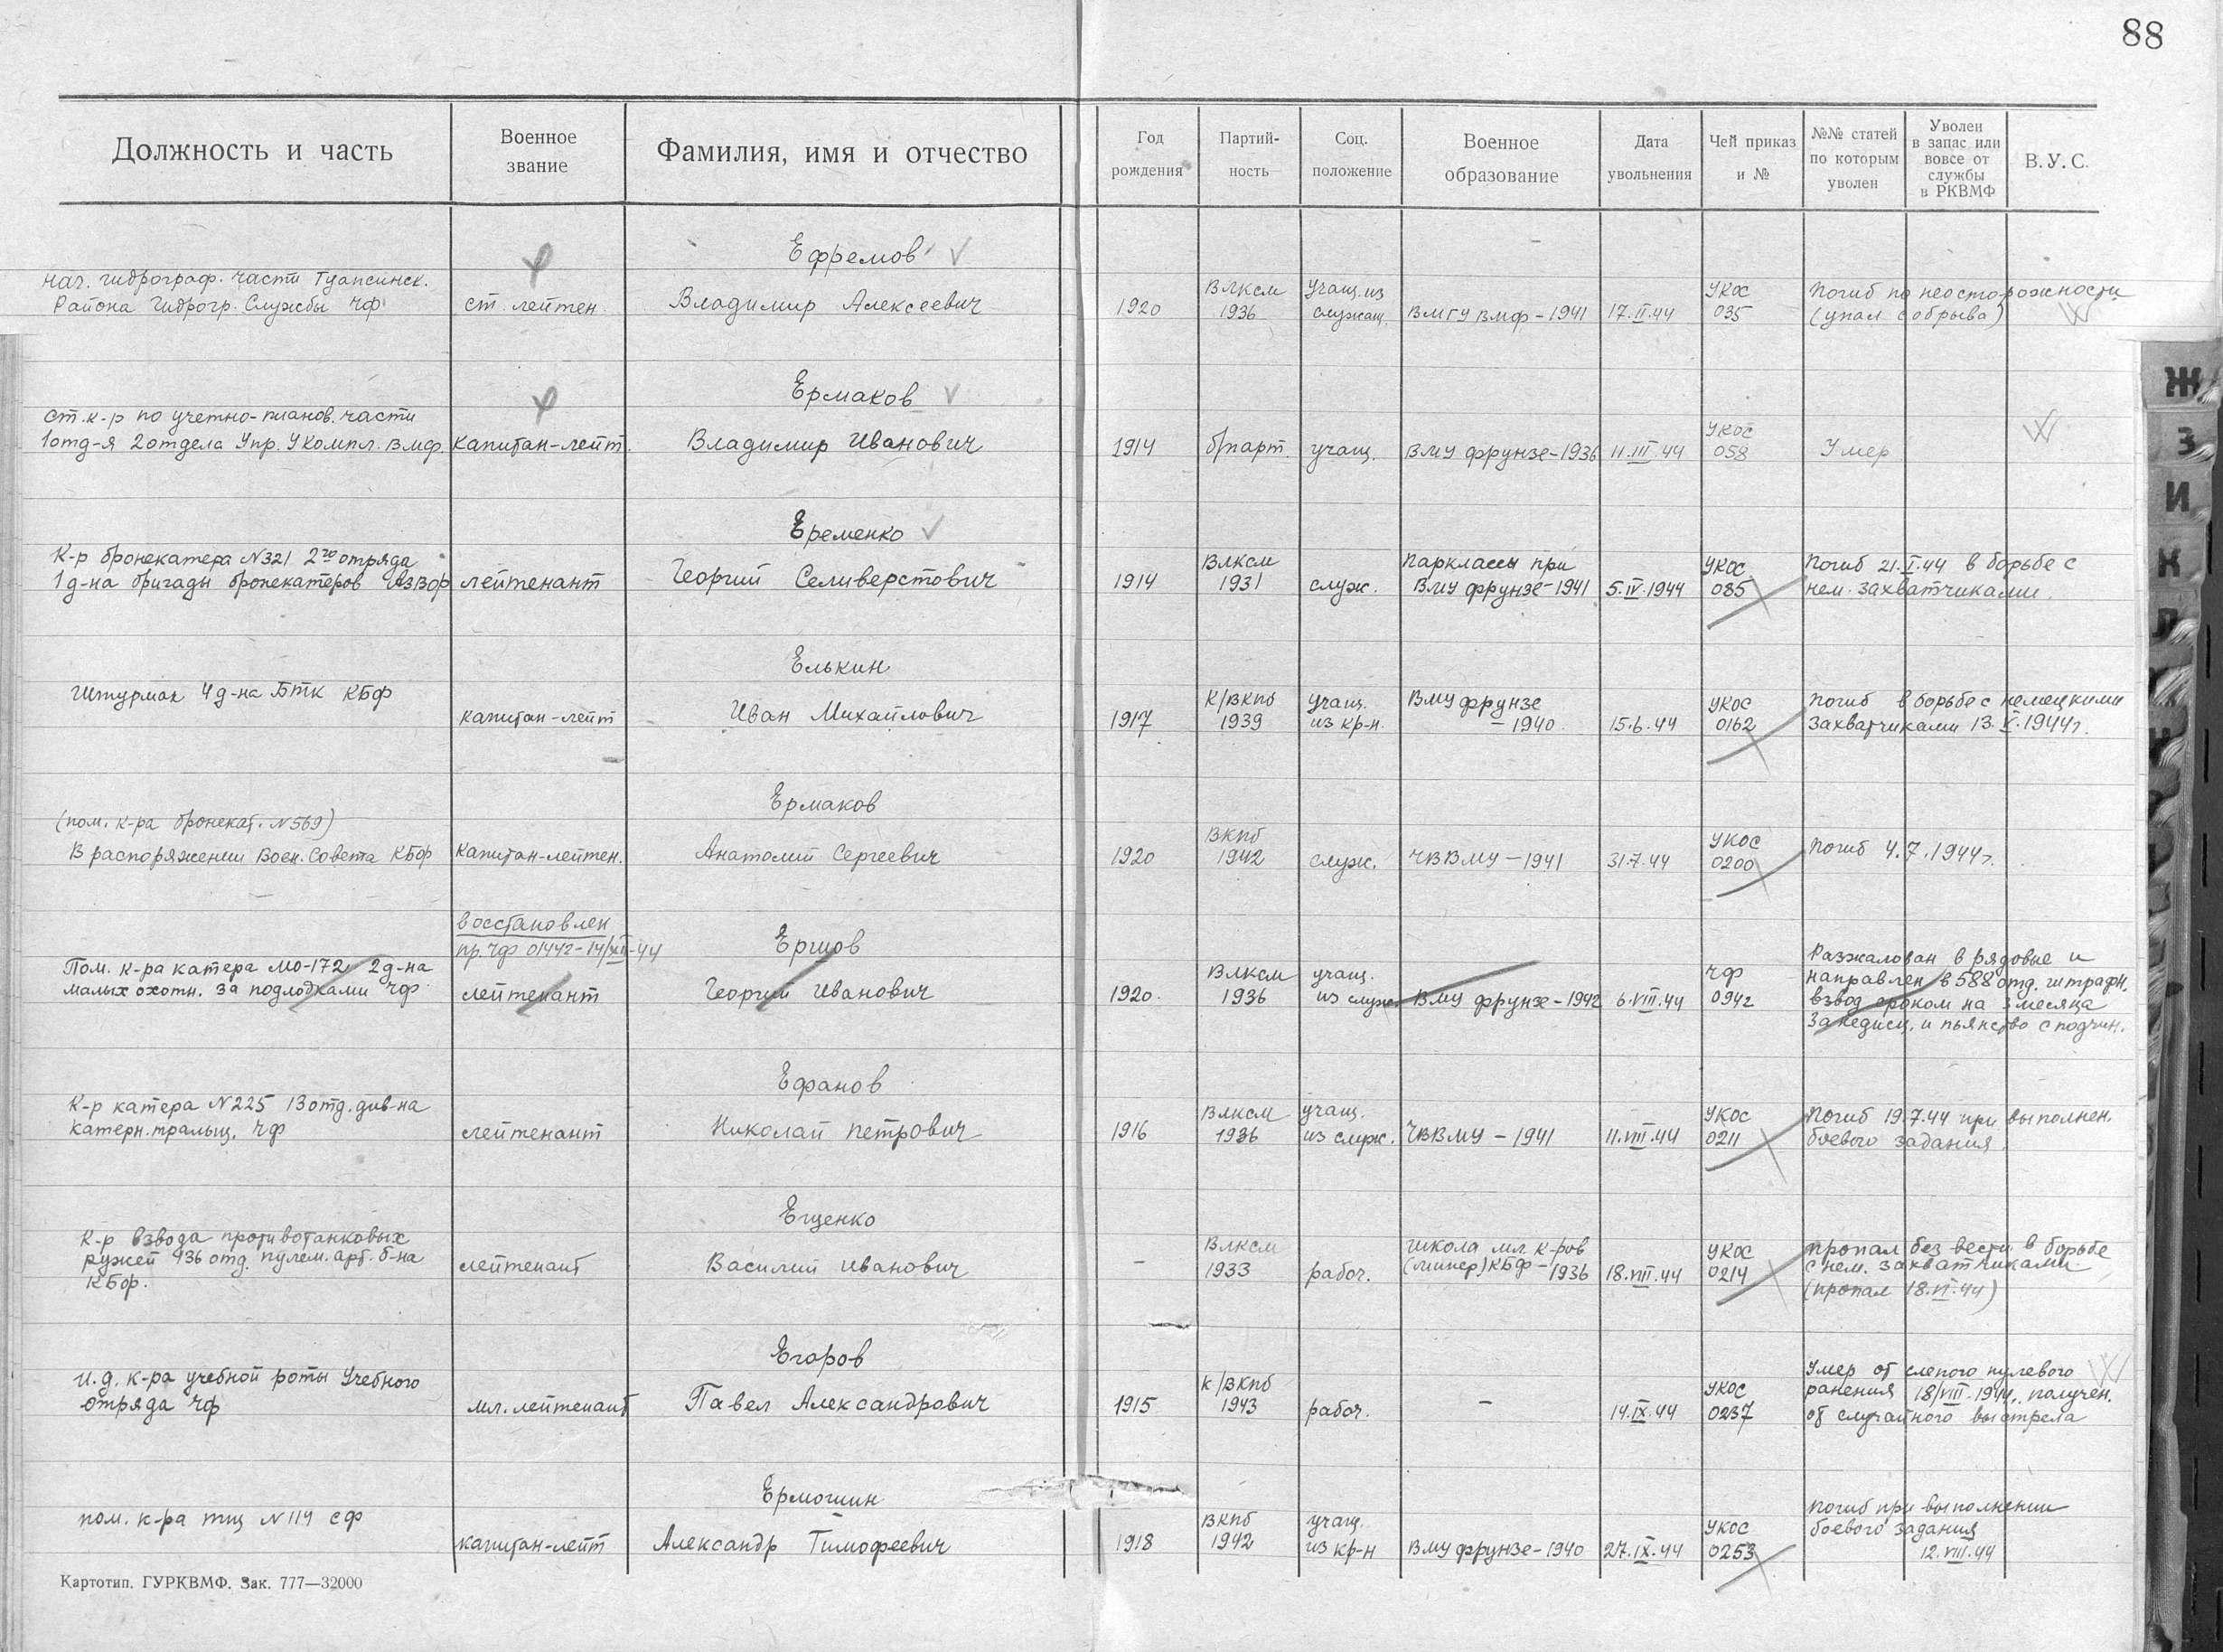 88
Должность и часть
Военное
звание
Фамилия, имя и отчество
Год
рождения
Партий-
ность
Соц.
положение
Военное
образование
Дата
увольнения
Чей приказ
и №
№№ статей
по которым
уволен
Уволен
в запас или
вовсе от
службы
в РКВМФ
В.У.С.
Ефремов
Нач. гидрограф. части Туапсинск.
Района Гидрогр. Службы ЧФ
ст. лейтен.
Владимир Алексеевич
1920
Влксм
1936
Учащ. из
служащ.
ВМГУ ВМФ - 1941
17.II.44
УКОС
035
Погиб по неосторожности
(упал с обрыва)
Ермаков
Ст. к-р по учетно-планов. части
1 отд-я 2 отдела Упр. УКомпл. ВМФ.
капитан-лейт.
Владимир Иванович
1914
б/парт.
учащ.
ВМУ Фрунзе-1936
11.III.44
УКОС
058
Умер
Еременко
К-р бронекатера №321 2го отряда
1 д-на бригады бронекатеров АзВФ
лейтенант
Георгий Селиверстович
1914
Влксм
1931
служ.
Парклассы при
ВМУ Фрунзе-1941
5.IV.1944
УКОС
085
Погиб 21.I.44 в борьбе с
нем. захватчиками.
Елькин
Штурман 4 д-на БТК КБФ
капитан-лейт
Иван Михайлович
1917
К/ВКПб
1939
Учащ.
из кр-н.
ВМУ Фрунзе
- 1940.
15.6.44
УКОС
0162
Погиб в борьбе с немецкими
захватчиками 13.V.1944г.
Ермаков
(пом. к-ра бронекат. №569)
В распоряжении Воен. Совета КБФ
капитан-лейтен.
Анатолий Сергеевич
1920
ВКПб
1942
служ.
ЧВВМУ - 1941
31.7.44
УКОС
0200
Погиб 4.7.1944г.
восстановлен
пр. ЧФ 01442-14/XII-44
Ершов
Пом. к-ра катера МО-172 2 д-на
малых охотн. за подлодками ЧФ
лейтенант
Георгий Иванович
1920.
Влксм
1936
учащ.
из служ.
ВМУ Фрунзе-1942
6.VIII.44
ЧФ
0942
Разжалован в рядовые и
направлен в 588 отд. штрафн.
взвод сроком на 3 месяца
За недисц. и пьянство с подчин.
Ефанов
К-р катера №225 13 отд. див-на
катерн. тральщ. ЧФ
лейтенант
Николай Петрович
1916
Влксм
1936
учащ.
из служ.
ЧВВМУ - 1941
11.VIII.44
УКОС
0211
Погиб 19.7.44 при выполнен.
боевого задания.
Ещенко
К-р взвода противотанковых
ружей 436 отд. пулем. арт. б-на
КБФ.
лейтенант
Василий Иванович
-
Влксм
1933
рабоч.
школа мл. к-ров
(минер) КБФ - 1936
18.VIII.44
УКОС
0214
пропал без вести в борьбе
с нем. захватчиками.
(пропал 18.VI.44)
Егоров
И.д. к-ра учебной роты Учебного
отряда ЧФ
мл. лейтенант
Павел Александрович
1915
К/ВКПб
1943
рабоч.
-
14.IX.44
УКОС
0237
Умер от слепого пулевого
ранения 18/VIII.1944, получен.
от случайного выстрела
Ермошин
пом. к-ра тщ №114 СФ
капитан-лейт
Александр Тимофеевич
1918
ВКПб
1942
учащ.
из кр-н
ВМУ Фрунзе-1940
27.IX.44
УКОС
0253
Погиб при выполнении
боевого задания
12.VIII.44
Картотип. ГУРКВМФ. Зак. 777—32000
Ж
З
И
К
Л